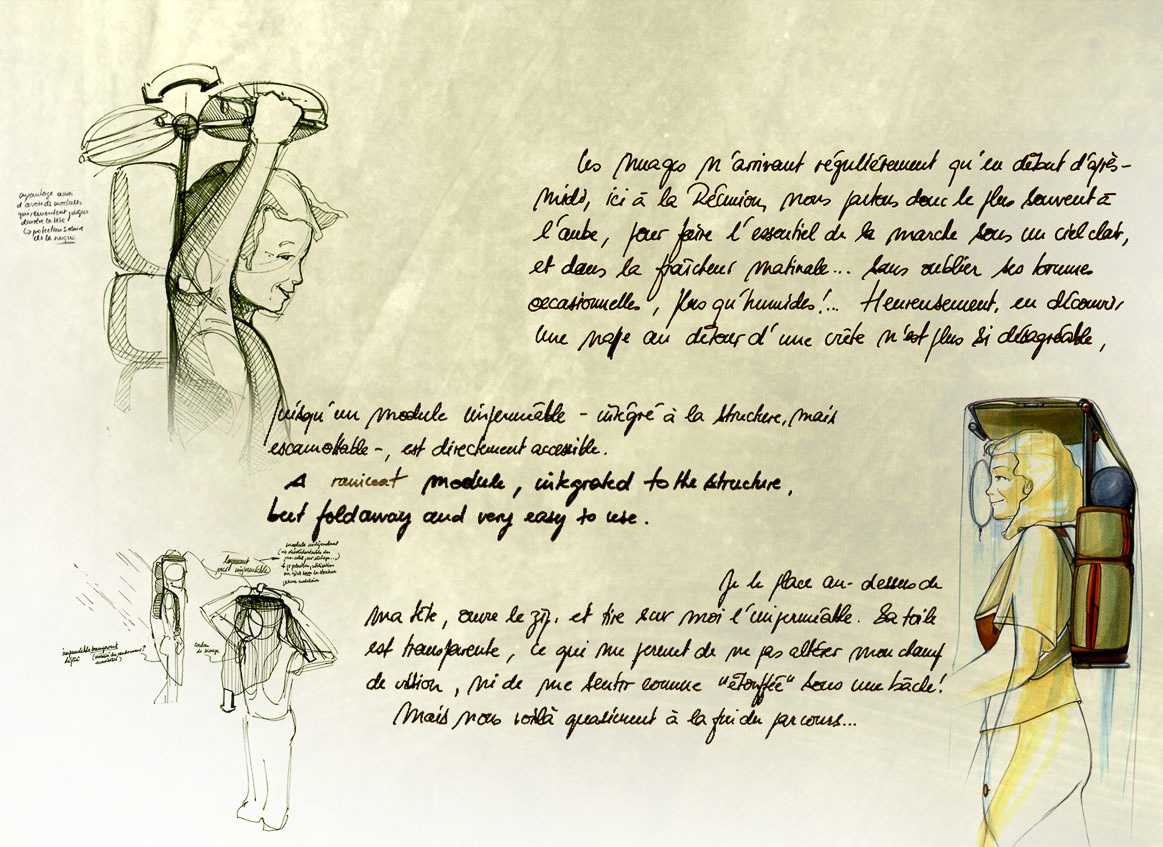 avantage aussi
d'avoir des modules
qui remontent jusque
derrière la tête :
protection solaire
de la nuque
Les nuages n'arrivant régulièrement qu'en début d'après-
midi, ici à la Réunion, nous partons donc le plus souvent à
l'aube, pour faire l'essentiel de la marche sous un ciel clair,
et dans la fraîcheur matinale... Sans oublier ses brumes
occasionnelles, plus qu'humides!... Heureusement, en découvrir
une nape au détour d'une crête n'est plus si désagréable,
puisqu'un module imperméable - intégré à la structure, mais
escamottable -, est directement accessible.
A raincoat module, integrated to the structure,
but foldaway and very easy to use.
module indépendant
imperméable transparent
léger
Je le place au-dessus de
ma tête, ouvre le zip, et tire sur moi l'imperméable. Sa toile
est transparente, ce qui me permet de ne pas altérer mon champ
de vision, ni de me sentir comme "étouffée" sous une bâche!
Mais nous voilà quasiment à la fin du parcours...